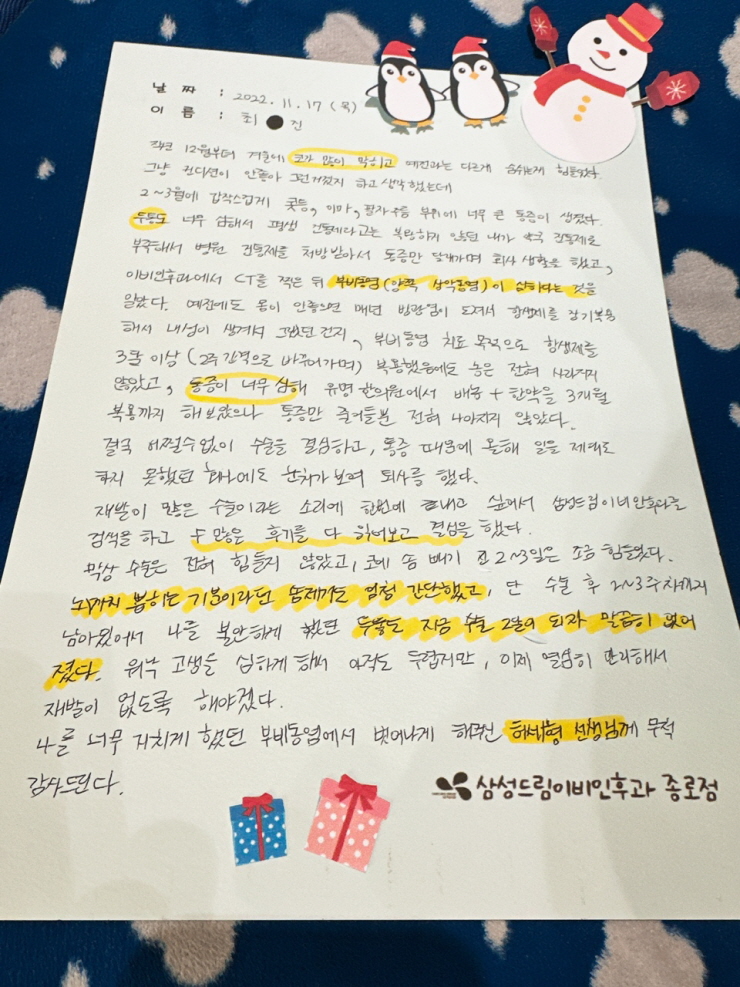 날 짜 : 2022. 11. 17 (목)
이 름 : 최 ● 진
작년 12월부터 겨울에 코가 많이 막히고 예전과는 다르게 숨쉬는게 힘들었다.
그냥 컨디션이 안좋아 그런거겠지 하고 생각했는데
2~3월에 갑작스럽게 콧등, 이마, 팔자주름 부위에 너무 큰 통증이 생겼다.
두통도 너무 심해서 평생 진통제라고는 복용하지 않던 내가 약국 진통제로
부족해서 병원 진통제를 처방받아서 통증만 달래가며 회사 생활을 했고,
이비인후과에서 CT를 찍은 뒤 부비동염(양쪽 상악동염)이 심하다는 것을
알았다. 예전에도 몸이 안좋으면 매년 방광염이 도져서 항생제를 장기복용
해서 내성이 생겨서 그랬던건지, 부비동염 치료 목적으로 항생제를
3달 이상 (2주 간격으로 바꾸어가며) 복용했음에도 농은 전혀 사라지지
않았고, 통증이 너무 심해 유명 한의원에서 배농 + 한약을 3개월
복용까지 해보았으나 통증만 줄어들뿐 전혀 나아지지 않았다.
결국 어쩔수없이 수술을 결심하고, 통증 때문에 올해 일을 제대로
하지 못했던 회사에도 눈치가 보여 퇴사를 했다.
재발이 많은 수술이라는 소리에 한번에 끝내고 싶어서 삼성드림이비인후과를
검색을 하고 수많은 후기를 다 읽어보고 결심을 했다.
막상 수술은 전혀 힘들지 않았고, 코에 솜 빼기 전 2~3일은 조금 힘들었다.
뇌까지 뽑히는 기분이라던 솜제거도 엄청 간단했고, 단 수술 후 2~3주차까지
남아있어서 나를 불안하게 했던 두통도 지금 수술 2달이 되자 말끔히 없어
졌다. 워낙 고생을 심하게 해서 아직도 두렵지만, 이제 열심히 관리해서
재발이 없도록 해야겠다.
나를 너무 지치게 했던 부비동염에서 벗어나게 해주신 허세형 선생님께 무척
감사드린다.
삼성드림이비인후과 종로점